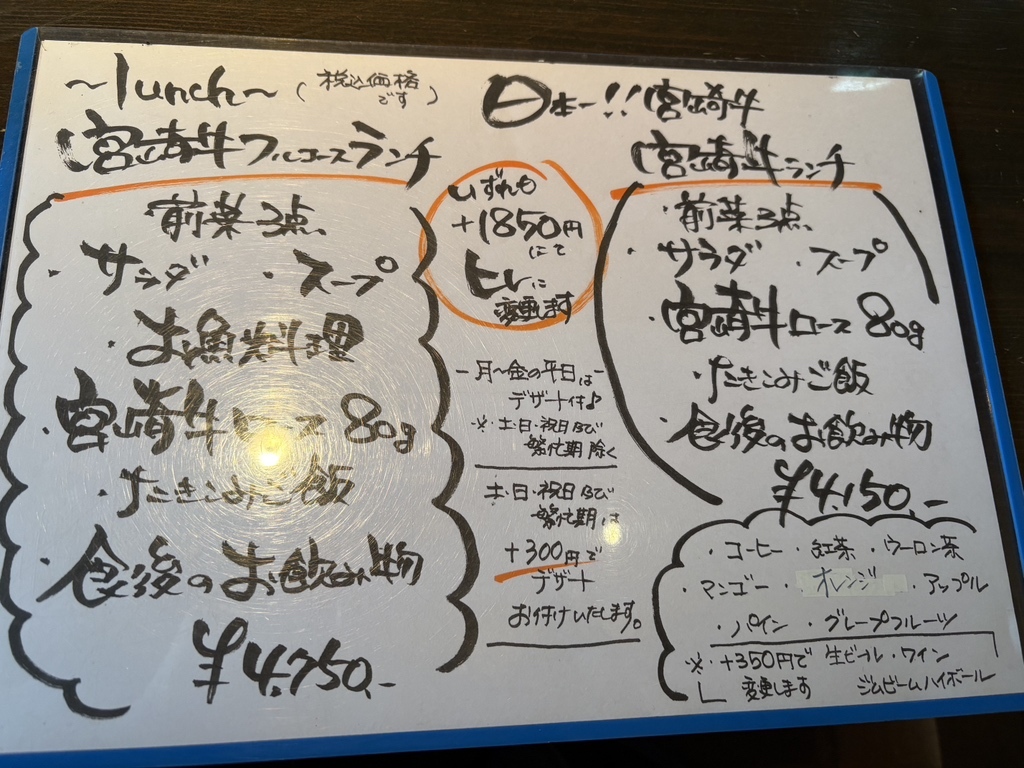 ～lunch～（税込価格です）
日本一!!宮崎牛
宮崎牛フルコースランチ
前菜3点
・サラダ ・スープ
お魚料理
・宮崎牛ロース 80g
・たきこみご飯
・食後のお飲み物
¥4,750.-
いずれも
+1850円
にて
ヒレに
変更します
-月～金の平日は-
デザート付♪
※・土・日・祝日及び
繁忙期 除く
土・日・祝日及び
繁忙期は
+300円で
デザート
お付けいたします。
宮崎牛ランチ
・前菜3点
・サラダ ・スープ
・宮崎牛ロース 80g
・たきこみご飯
・食後のお飲み物
¥4,150.-
・コーヒー ・紅茶 ・ウーロン茶
・マンゴー ・オレンジ ・アップル
・パイン ・グレープフルーツ
※・+350円で 生ビール・ワイン
変更します ジムビームハイボール